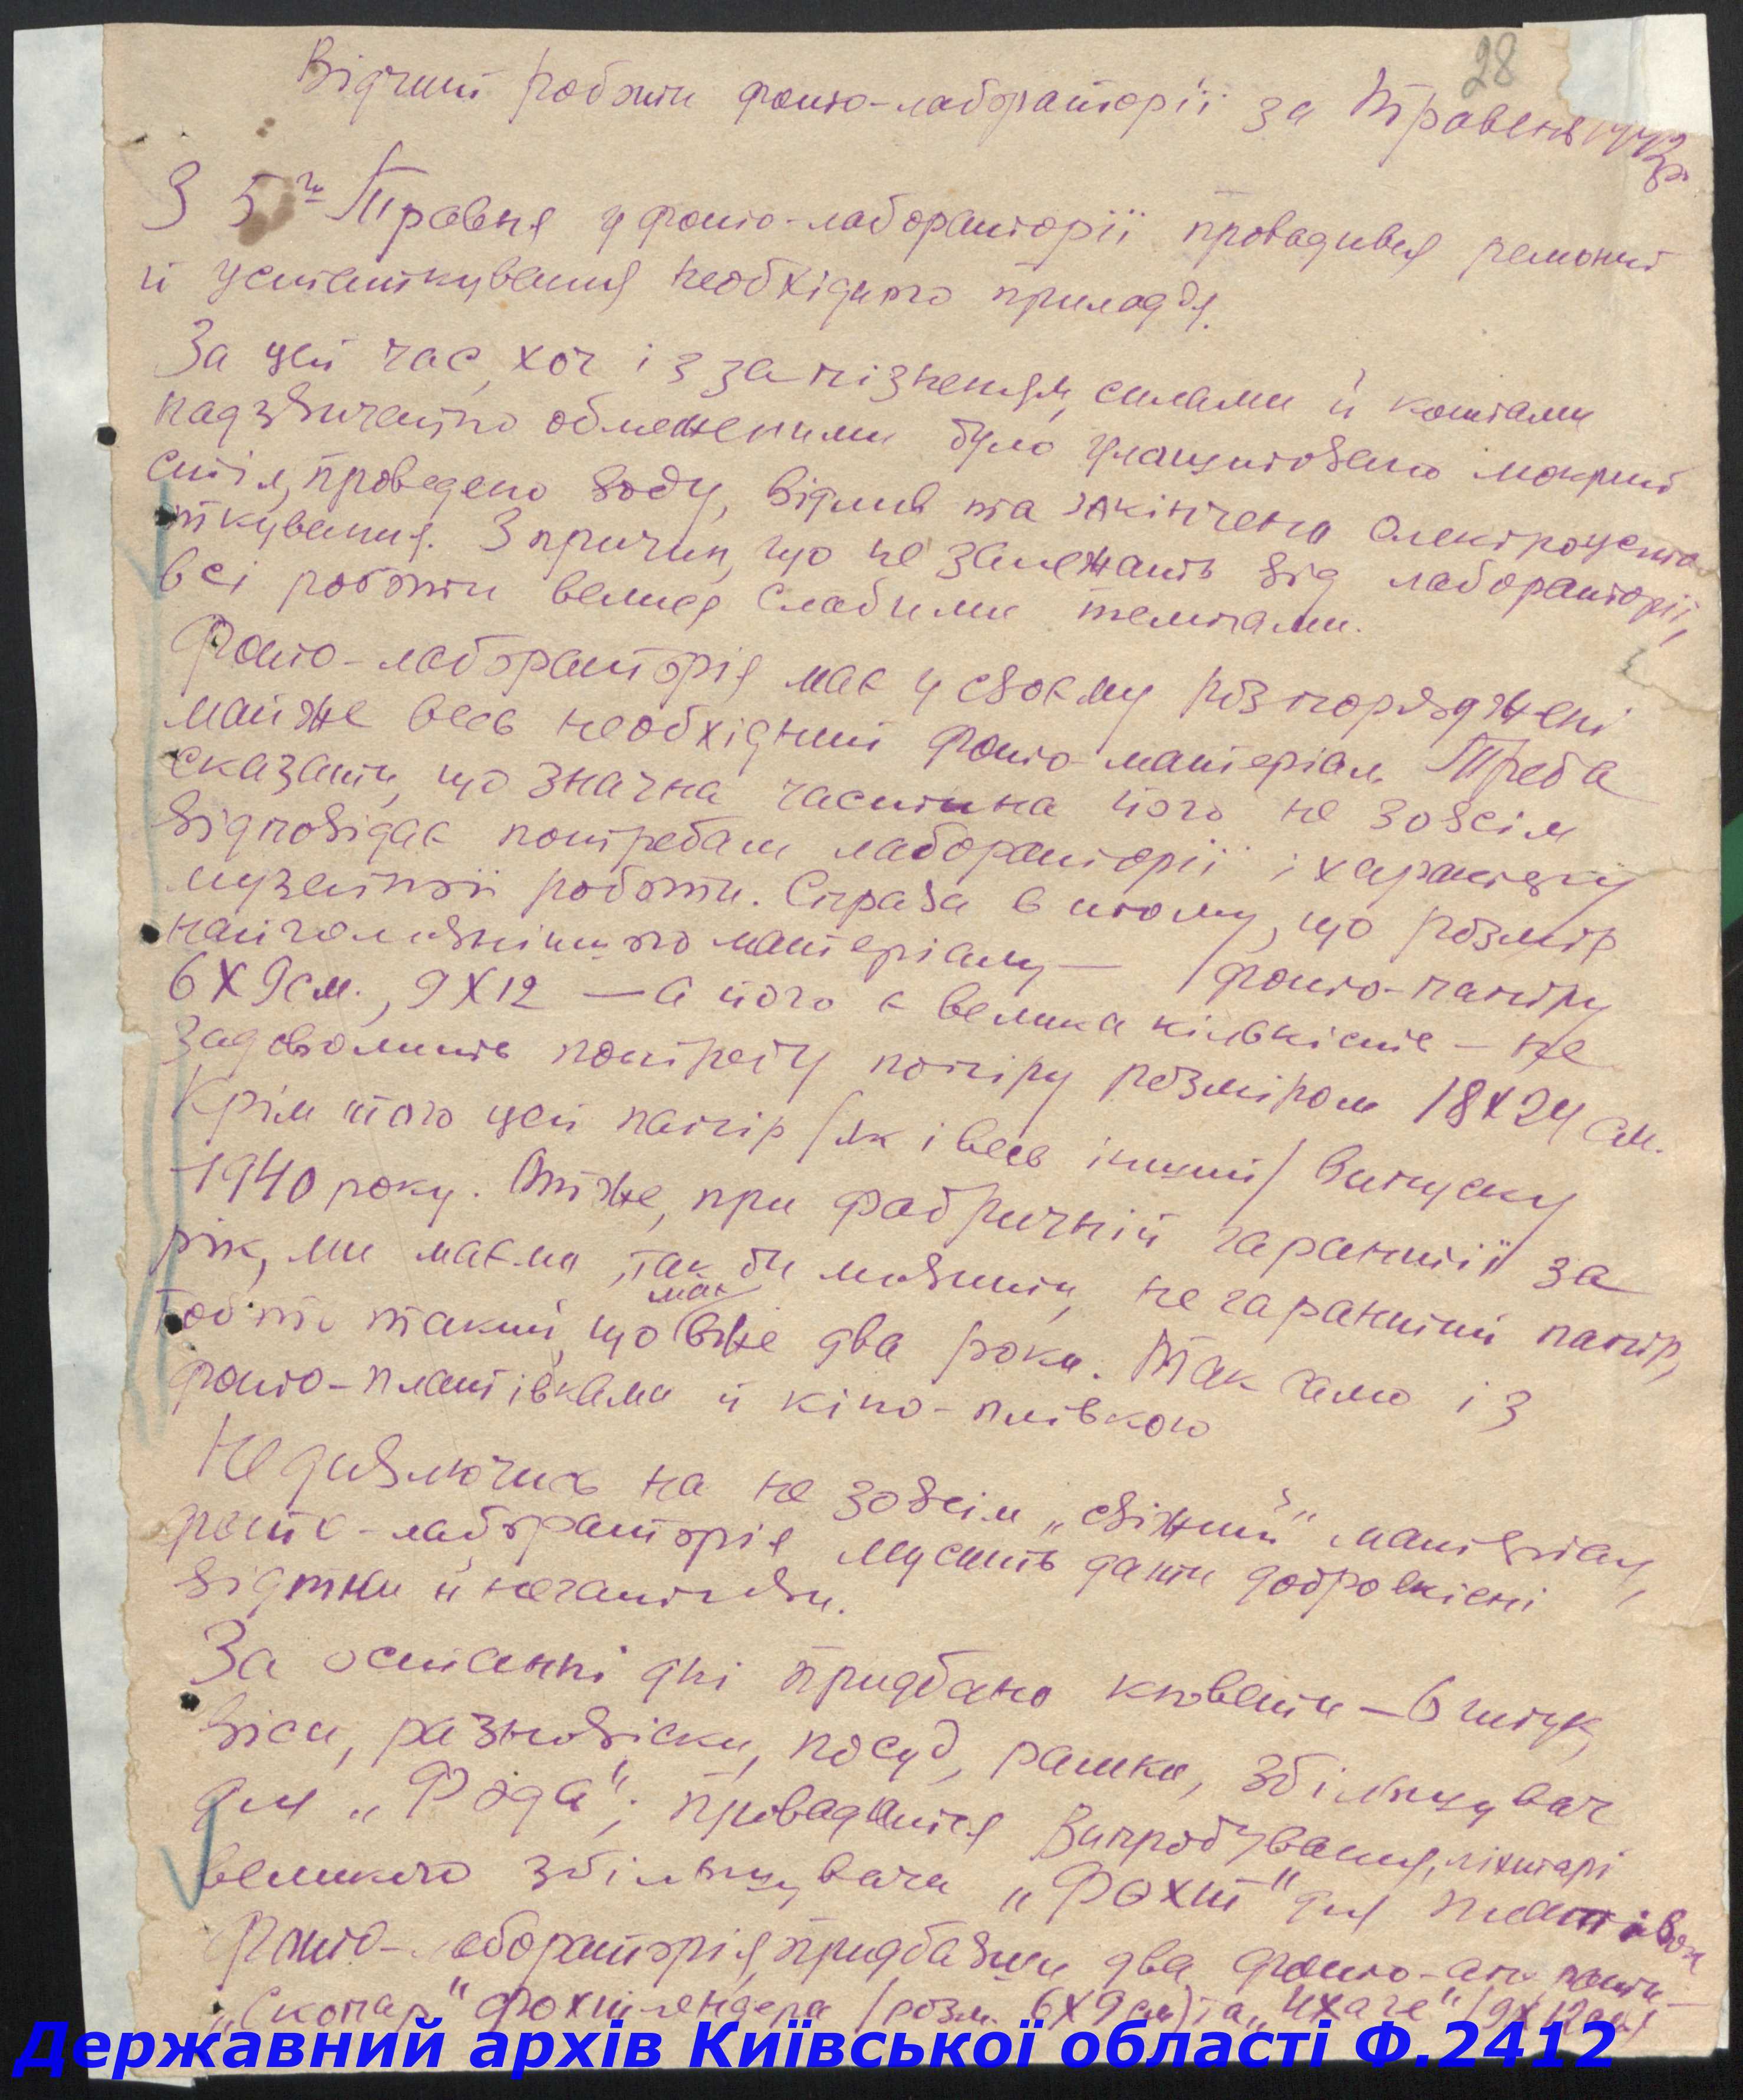 28
Відчит роботи фото-лабораторії за Травень 1942р.
З 5го Травня у фото-лабораторії провадився ремонт
й устаткування необхідного приладдя.
За цей час, хоч і з запізненням, силами й коштами
надзвичайно обмеженими було улаштовано мокрий
стіл, проведено воду, відлив та закінчено електроуста-
ткування. З причин, що не залежать від лабораторії,
всі роботи велися слабими темпами.
Фото-лабораторія має у своєму розпоряджені
майже весь необхідний фото-матеріал. Треба
сказати, що значна частина його не зовсім
відповідає потребам лабораторії і характеру
музейної роботи. Справа в тому, що розмір
найголовнішого матеріалу — фото-папіру
6X9см., 9X12 — а його є велика кількість — не
задовольнить потребу папіру розміром 18X24 см.
Крім того цей папір /як і весь інший/ випуску
1940 року. Отже, при фабричній гарантії за
рік, ми маємо, так би мовити, не гарантний папір,
тобто такий, що має вже два роки. Так само із
фото-платівками й кіно-плівкою
Не дивлючись на не зовсім „свіжий" матеріал,
фото-лабораторія мусить дати доброякісні
відтки й негативи.
За останні дні придбано кювети — 6 штук,
віси, разновіски, посуд, рамки, збільшувач
для „Феда"; провадяться випробування, ліхтарі
великого збільшувача „Фохт" для платівок
Фото-лабораторія, придбавши два фото-апарати —
„Скопар" Фохтлендера (розм. 6X9 см) та „ "/9X12см/
Державний архів Київської області Ф.2412